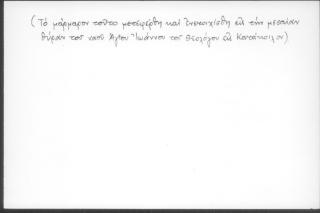 (Τὸ μάρμαρον τοῦτο μετεφέρθη καὶ ἐνετοιχίσθη εἰς τὴν μεσαίαν
θύραν τοῦ ναοῦ Ἁγίου Ἰωάννου τοῦ Θεολόγου εἰς)